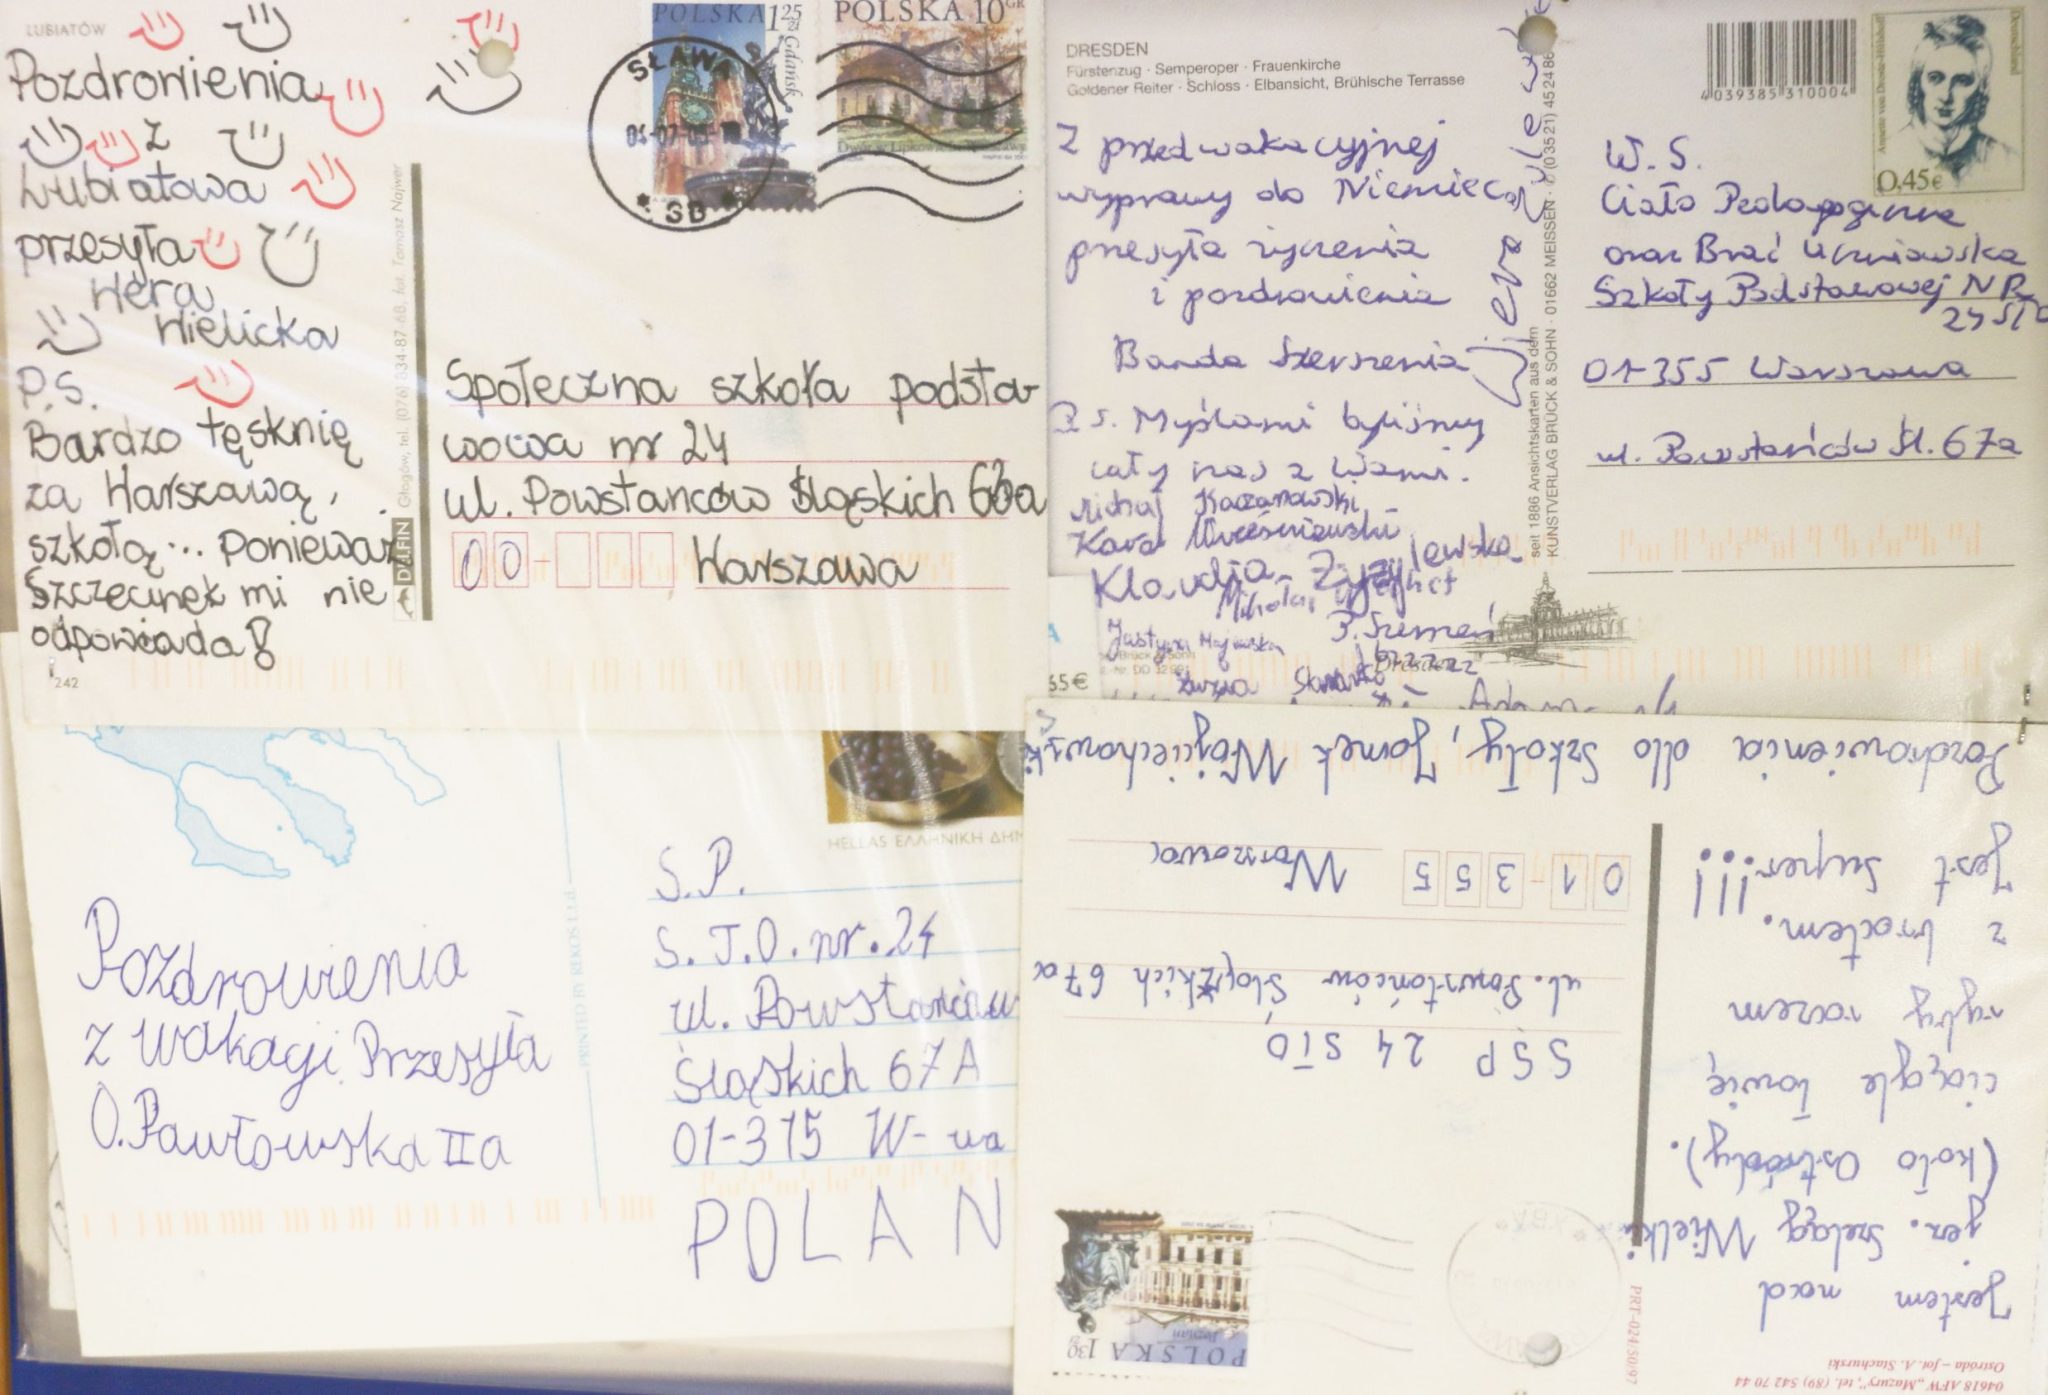 LUBIATÓW
Pozdrowienia
z
Lubiatowa
przesyła
Wera
Wielicka
P.S.
Bardzo tęsknię
za Warszawą,
szkołą... ponieważ
Szczecinek mi nie
odpowiada!
242
DELFIN Głogów, tel. (076) 834-87-68, fot. Tomasz Najwer
POLSKA 1 25 zł
Gdańsk
POLSKA 10 GR
SŁAWA
SB
Społeczna szkoła podsta-
wowa nr 24
ul. Powstańców Śląskich 63a
00- Warszawa
DRESDEN
Fürstenzug · Semperoper · Frauenkirche
Goldener Reiter · Schloss · Elbansicht, Brühlsche Terrasse
Z przedwakacyjnej
wyprawy do Niemiec
przesyła życzenia
i pozdrowienia
Banda Szerszenia
P.S. Myślami byliśmy
cały czas z Wami.
Michał Kaczanowski
Klaudia
Mikołaj
Justyna Majewska
P. Szerszeń
bzzzzzz
Zuzia
seit 1886 Ansichtskarten aus dem
KUNSTVERLAG BRÜCK & SOHN · 01662 MEISSEN · (03521) 45 24 86
4 039385 310004
Annette von Droste-Hülshoff
Deutschland
0,45€
W. S.
Ciało Pedagogiczne
oraz Brać Uczniowska
Szkoły Podstawowej NR
24 STO
01-355 Warszawa
ul. Powstańców Śl. 67a
Dresden
65€
HELLAS ΕΛΛΗΝΙΚΗ ΔΗΜ
PRINTED BY REKOS Ltd.
Pozdrowienia
z wakacji Przesyła
O. Pawłowska IIa
S.P.
S.T.O. nr. 24
ul. Powstańców
Śląskich 67A
01-375 W-wa
POLAN
04618 AFW „Mazury”, tel. (89) 542 70 44
Ostróda – fot. A. Stachurski
PRT-024/50/97
Jestem nad
jez. Szeląg Wielki
(koło Ostródy).
ciągle łowię
ryby razem
z bratem.
Jest super!!!
Pozdrowienia dla szkoły, Janek Wojciechowski
POLSKA 1 30 zł
Poznań
SSP 24 STO
ul. Powstańców Śląskich 67a
01-355 Warszawa